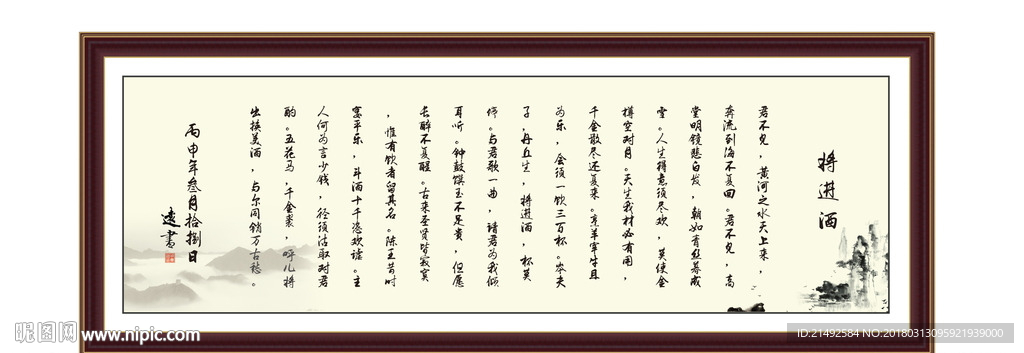 将进酒
君不见，黄河之水天上来，
奔流到海不复回。君不见，高
堂明镜悲白发，朝如青丝暮成
雪。人生得意须尽欢，莫使金
樽空对月。天生我材必有用，
千金散尽还复来。烹羊宰牛且
为乐，会须一饮三百杯。岑夫
子，丹丘生，将进酒，杯莫
停。与君歌一曲，请君为我倾
耳听。钟鼓馔玉不足贵，但愿
长醉不复醒。古来圣贤皆寂寞
，惟有饮者留其名。陈王昔时
宴平乐，斗酒十千恣欢谑。主
人何为言少钱，径须沽取对君
酌。五花马，千金裘，呼儿将
出换美酒，与尔同销万古愁。
丙申年叁月拾捌日
逺書
昵图网 www.nipic.com
ID:21492584 NO:20180313095921939000